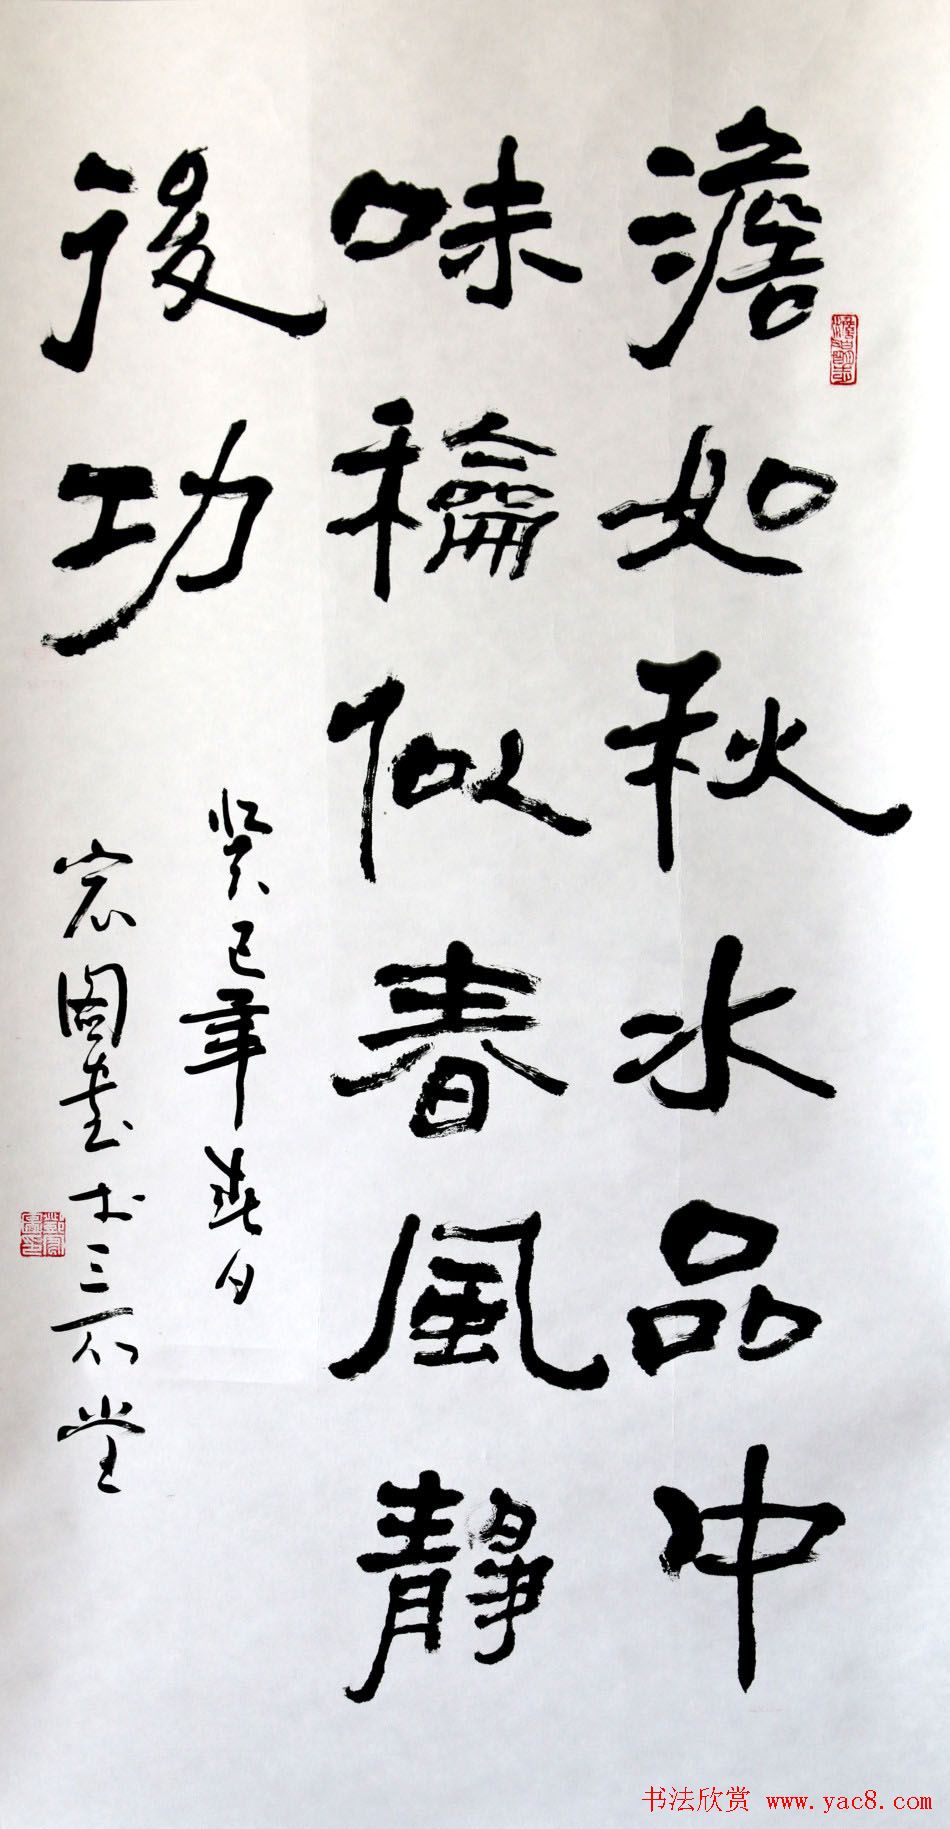 澹如秋水品中
味穐似春風靜
後功
癸巳年春月
宏圖書于三石堂
书法欣赏 www.yac8.com